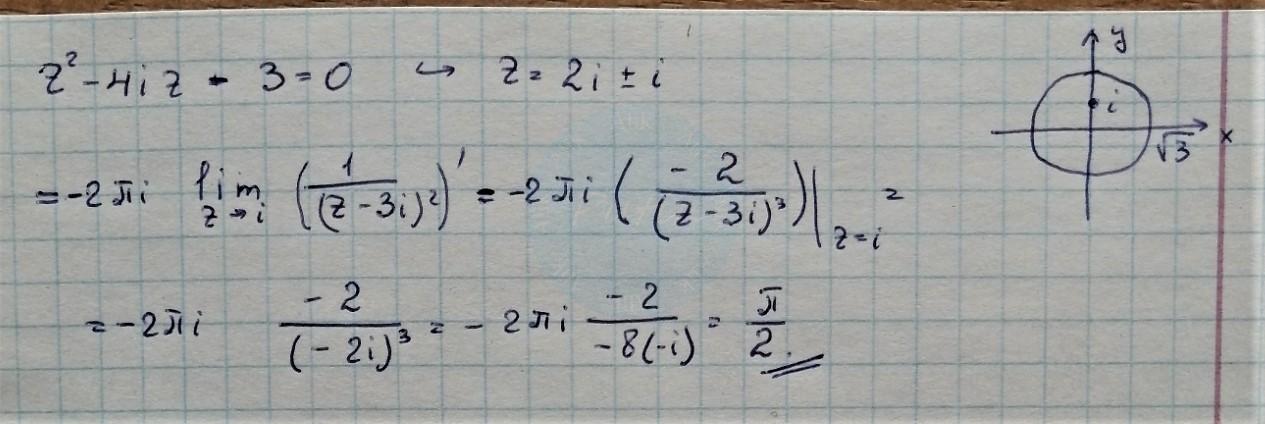 z² - 4iz - 3 = 0 ↪ z = 2i ± i
y
i
√3 x
= -2πi lim_{z→i} (1/(z-3i)²)' = -2πi (-2/(z-3i)³)|_{z=i} =
= -2πi -2/(-2i)³ = -2πi -2/-8(-i) = π/2.